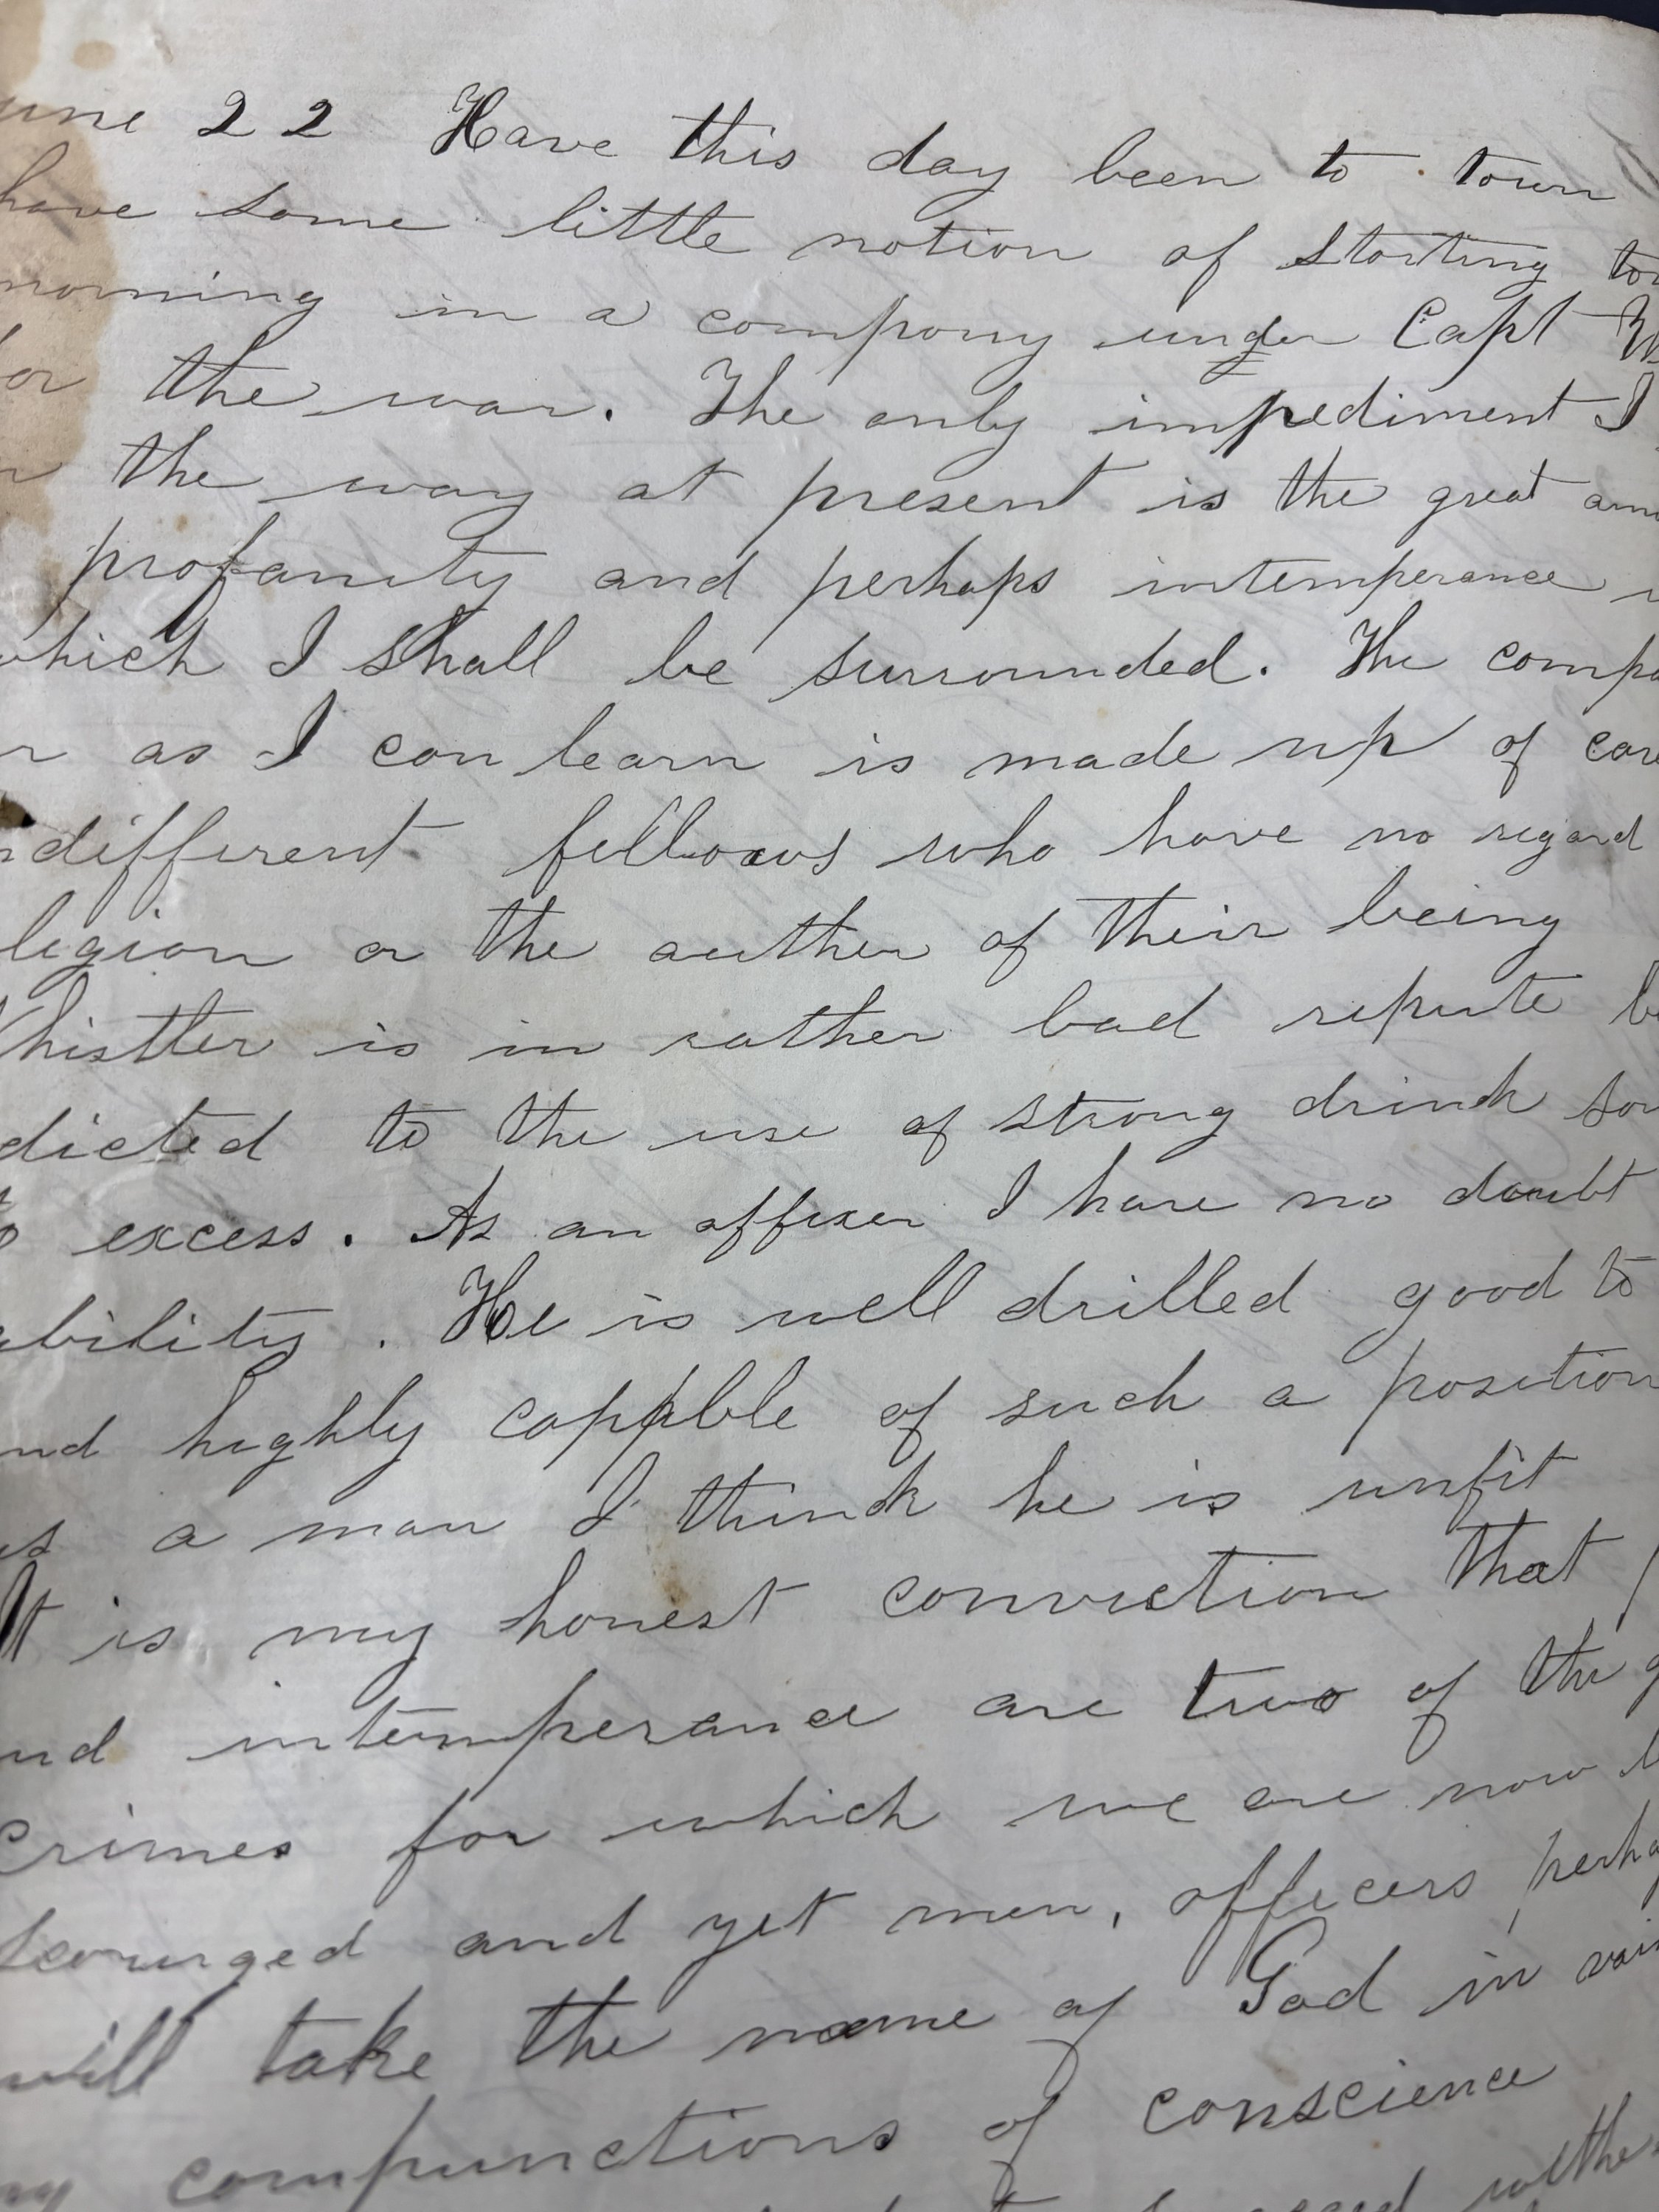 une 22 Have this day been to town
have some little notion of starting to
morning in a company under Capt W
or the war. The only impediment I
the way at present is the great am
profanity and perhaps intemperance
which I shall be surrounded. The compa
r as I can learn is made up of care
ndifferent fellows who have no regard
ligion or the auther of their being
Whistler is in rather bad repute be
dicted to the use of strong drink som
to excess. As an officer I have no doubt
ability. He is well drilled good to
nd highly capable of such a position
as a man I think he is unfit
It is my honest conviction that p
nd intemperance are two of the g
crimes for which we are now b
scourged and yet men, officers perha
will take the name of God in vain
ny compunctions of conscience